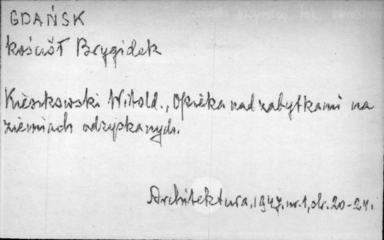 GDAŃSK
kościół Brygidek
Kieszkowski Witold., Opieka nad zabytkami na
ziemiach odzyskanych.
Architektura, 1947, nr. 1, str. 20-24.